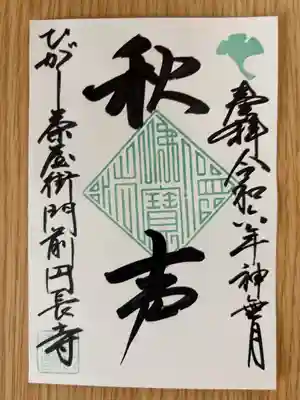 奉拝 令和六年神無月
秋声
ひがし茶屋街門前円長寺